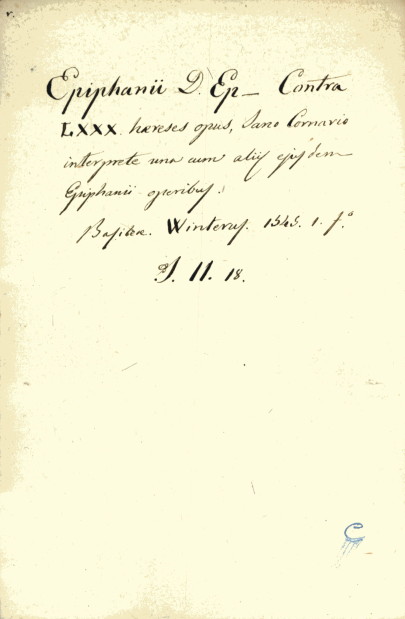 Epiphanii D. Ep— Contra
LXXX hæreses opus, Jano Cornario
interprete una cum aliis ejusdem
Epiphanii operibus.
Basileæ. Winterus. 1545. 1. fº
J. 11. 18.
C